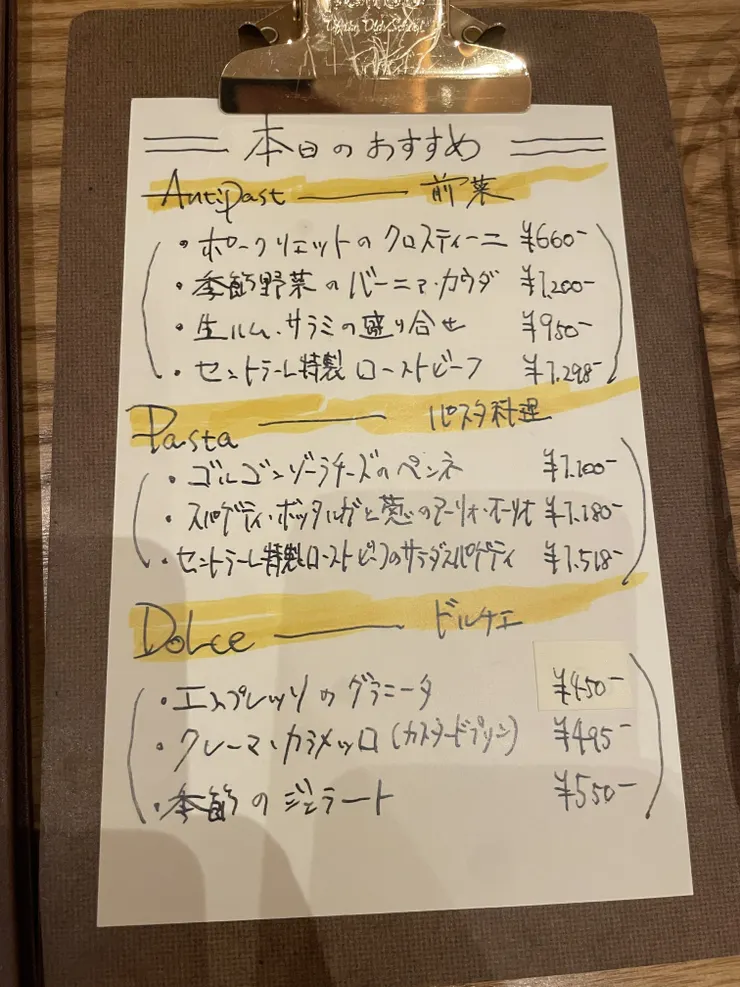 本日のおすすめ
Antipast 前菜
・ポークリエットのクロスティーニ ¥660-
・季節野菜のバーニァ・カウダ ¥1,200-
・生ハム・サラミの盛り合せ ¥950-
・セントラーレ特製ローストビーフ ¥1,298-
Pasta パスタ料理
・ゴルゴンゾーラチーズのペンネ ¥1,100-
・スパゲティ・ボッタルガと葱のアーリオ・オーリオ ¥1,180-
・セントラーレ特製ローストビーフのサラダスパゲティ ¥1,518-
Dolce ドルチェ
・エスプレッソのグラニータ ¥450-
・クレーマ・カラメッロ(カスタードプリン) ¥495-
・季節のジェラート ¥550-